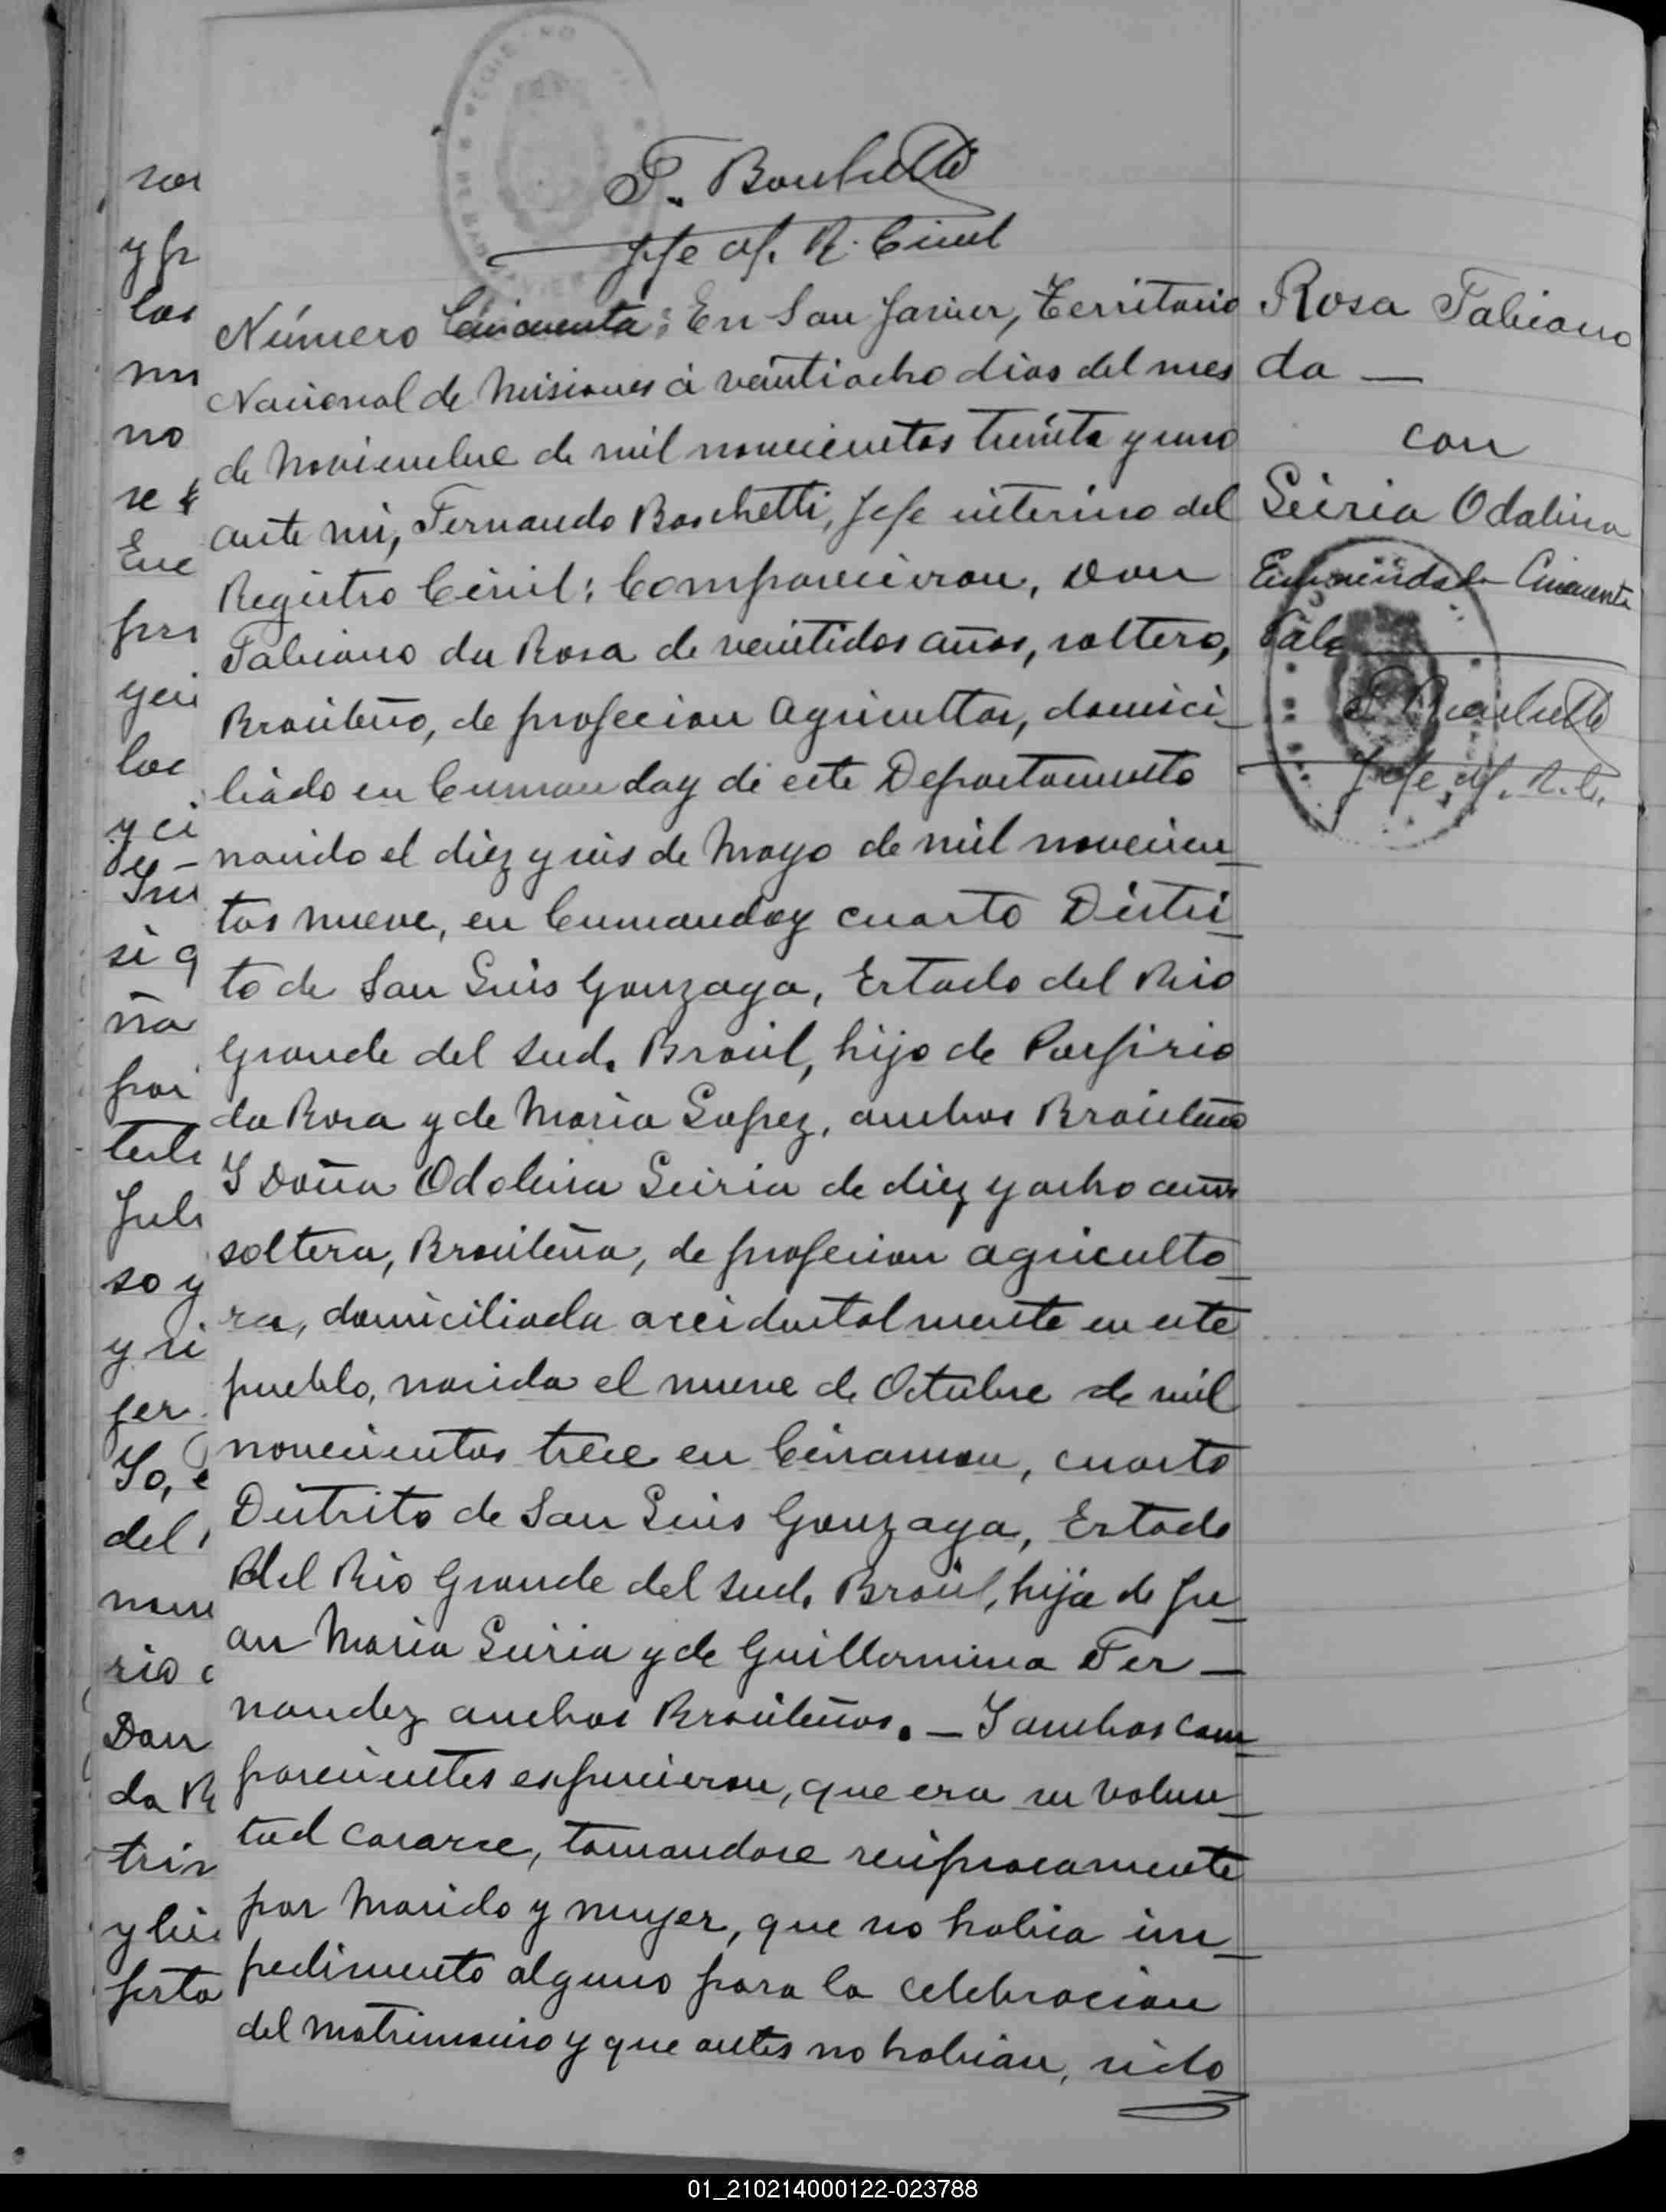 F. Boschetti
Jefe of. R. Civil
Número Cincuenta: En San Javier, Territorio
Nacional de Misiones á veintiocho dias del mes
de Noviembre de mil novecientos treinta y uno
ante mi, Fernando Boschetti, Jefe interino del
Registro Civil: Comparecieron, Don
Fabiano da Rosa de veintidos años, soltero,
Brasileño, de profecion agricultor, domici-
liado en Cumanday de este Departamento
nacido el diez y seis de Mayo de mil novecien-
tos nueve, en Cumanday cuarto Distri-
to de San Luis Gonzaga, Estado del Rio
Grande del Sud. Brasil, hijo de Porfirio
da Rosa y de Maria Lopez, ambos Brasileños
Y Doña Odalina Seiria de diez y ocho años
soltera, Brasileña, de profecion agriculto-
ra, domiciliada accidentalmente en este
pueblo, nacida el nueve de Octubre de mil
novecientos trece en, cuarto
Distrito de San Luis Gonzaga, Estado
del Rio Grande del Sud. Brasil, hija de Ju-
an Maria Seiria y de Guillermina Fer-
nandez ambos Brasileños. - Y ambos com-
parecientes espucieron, que era su volun-
tad casarse, tomandose reciprocamente
por Marido y mujer, que no habia im-
pedimento alguno para la celebracion
del matrimonio y que antes no habian, sido
Rosa Fabiano
da —
con
Seiria Odalina
Enmendado Cincuenta
Vale
F. Boschetti
Jefe of. R. C.
sor
y p
los
mi
no
se
Ene
pr
yei
loc
y ci
si q
ña
por
test
Jul
so y
y si
Yo, e
del
rio
Don
da R
trim
01_210214000122-023788